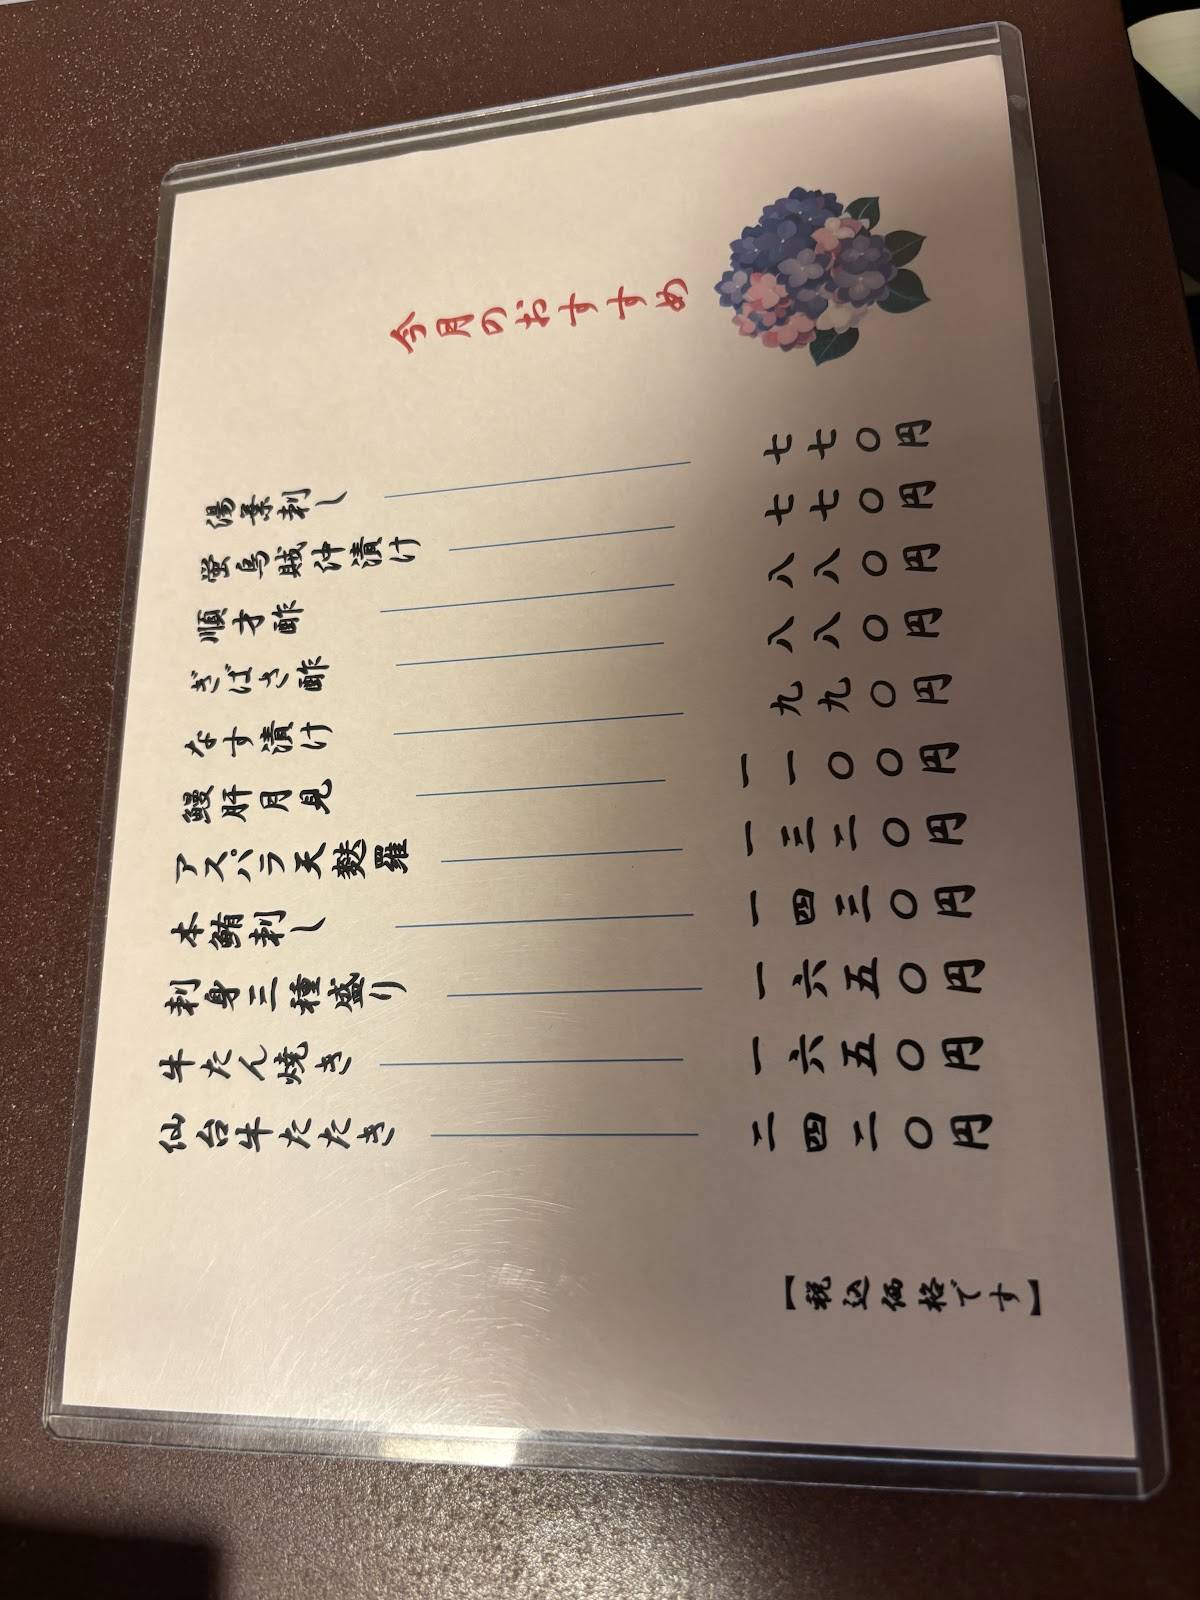 今月のおすすめ
湯葉刺し 七七〇円
蛍烏賊沖漬け 七七〇円
順才酢 八八〇円
ぎばさ酢 八八〇円
なす漬け 九九〇円
鰻肝月見 一一〇〇円
アスパラ天麩羅 一三二〇円
本鮪刺し 一四三〇円
刺身三種盛り 一六五〇円
牛たん焼き 一六五〇円
仙台牛たたき 二四二〇円
【税込価格です】